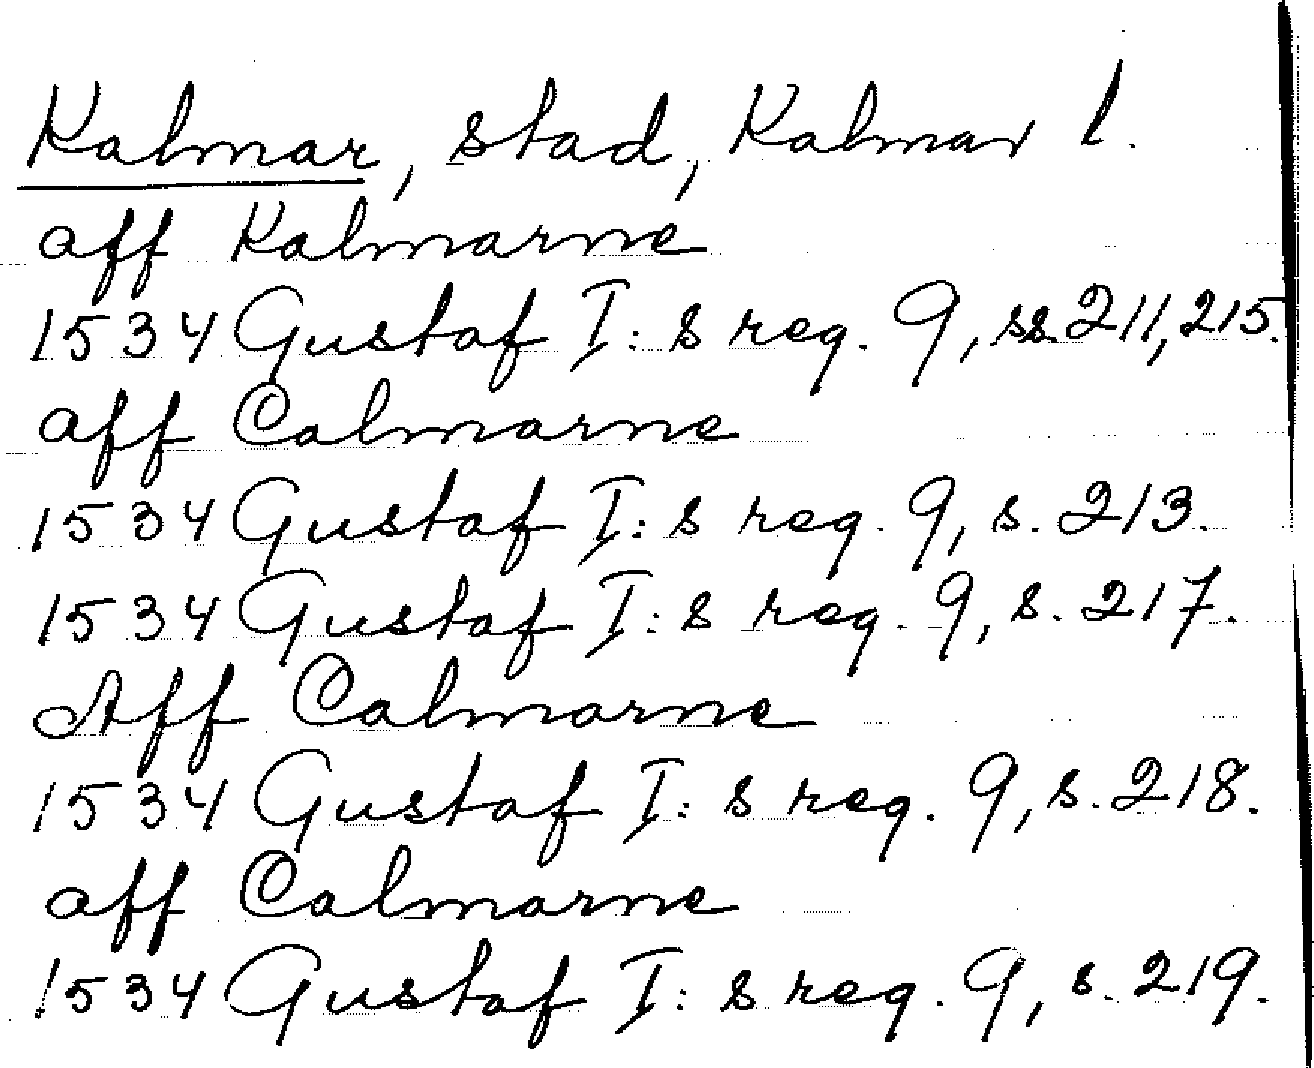 Kalmar, stad, Kalmar l.
aff Kalmarne
1534 Gustaf I:s reg. 9, ss. 211, 215.
aff Calmarne
1534 Gustaf I:s reg. 9, s. 213.
1534 Gustaf I:s reg. 9, s. 217.
Aff Calmarne
1534 Gustaf I:s reg. 9, s. 218.
aff Calmarne
1534 Gustaf I:s reg. 9, s. 219.